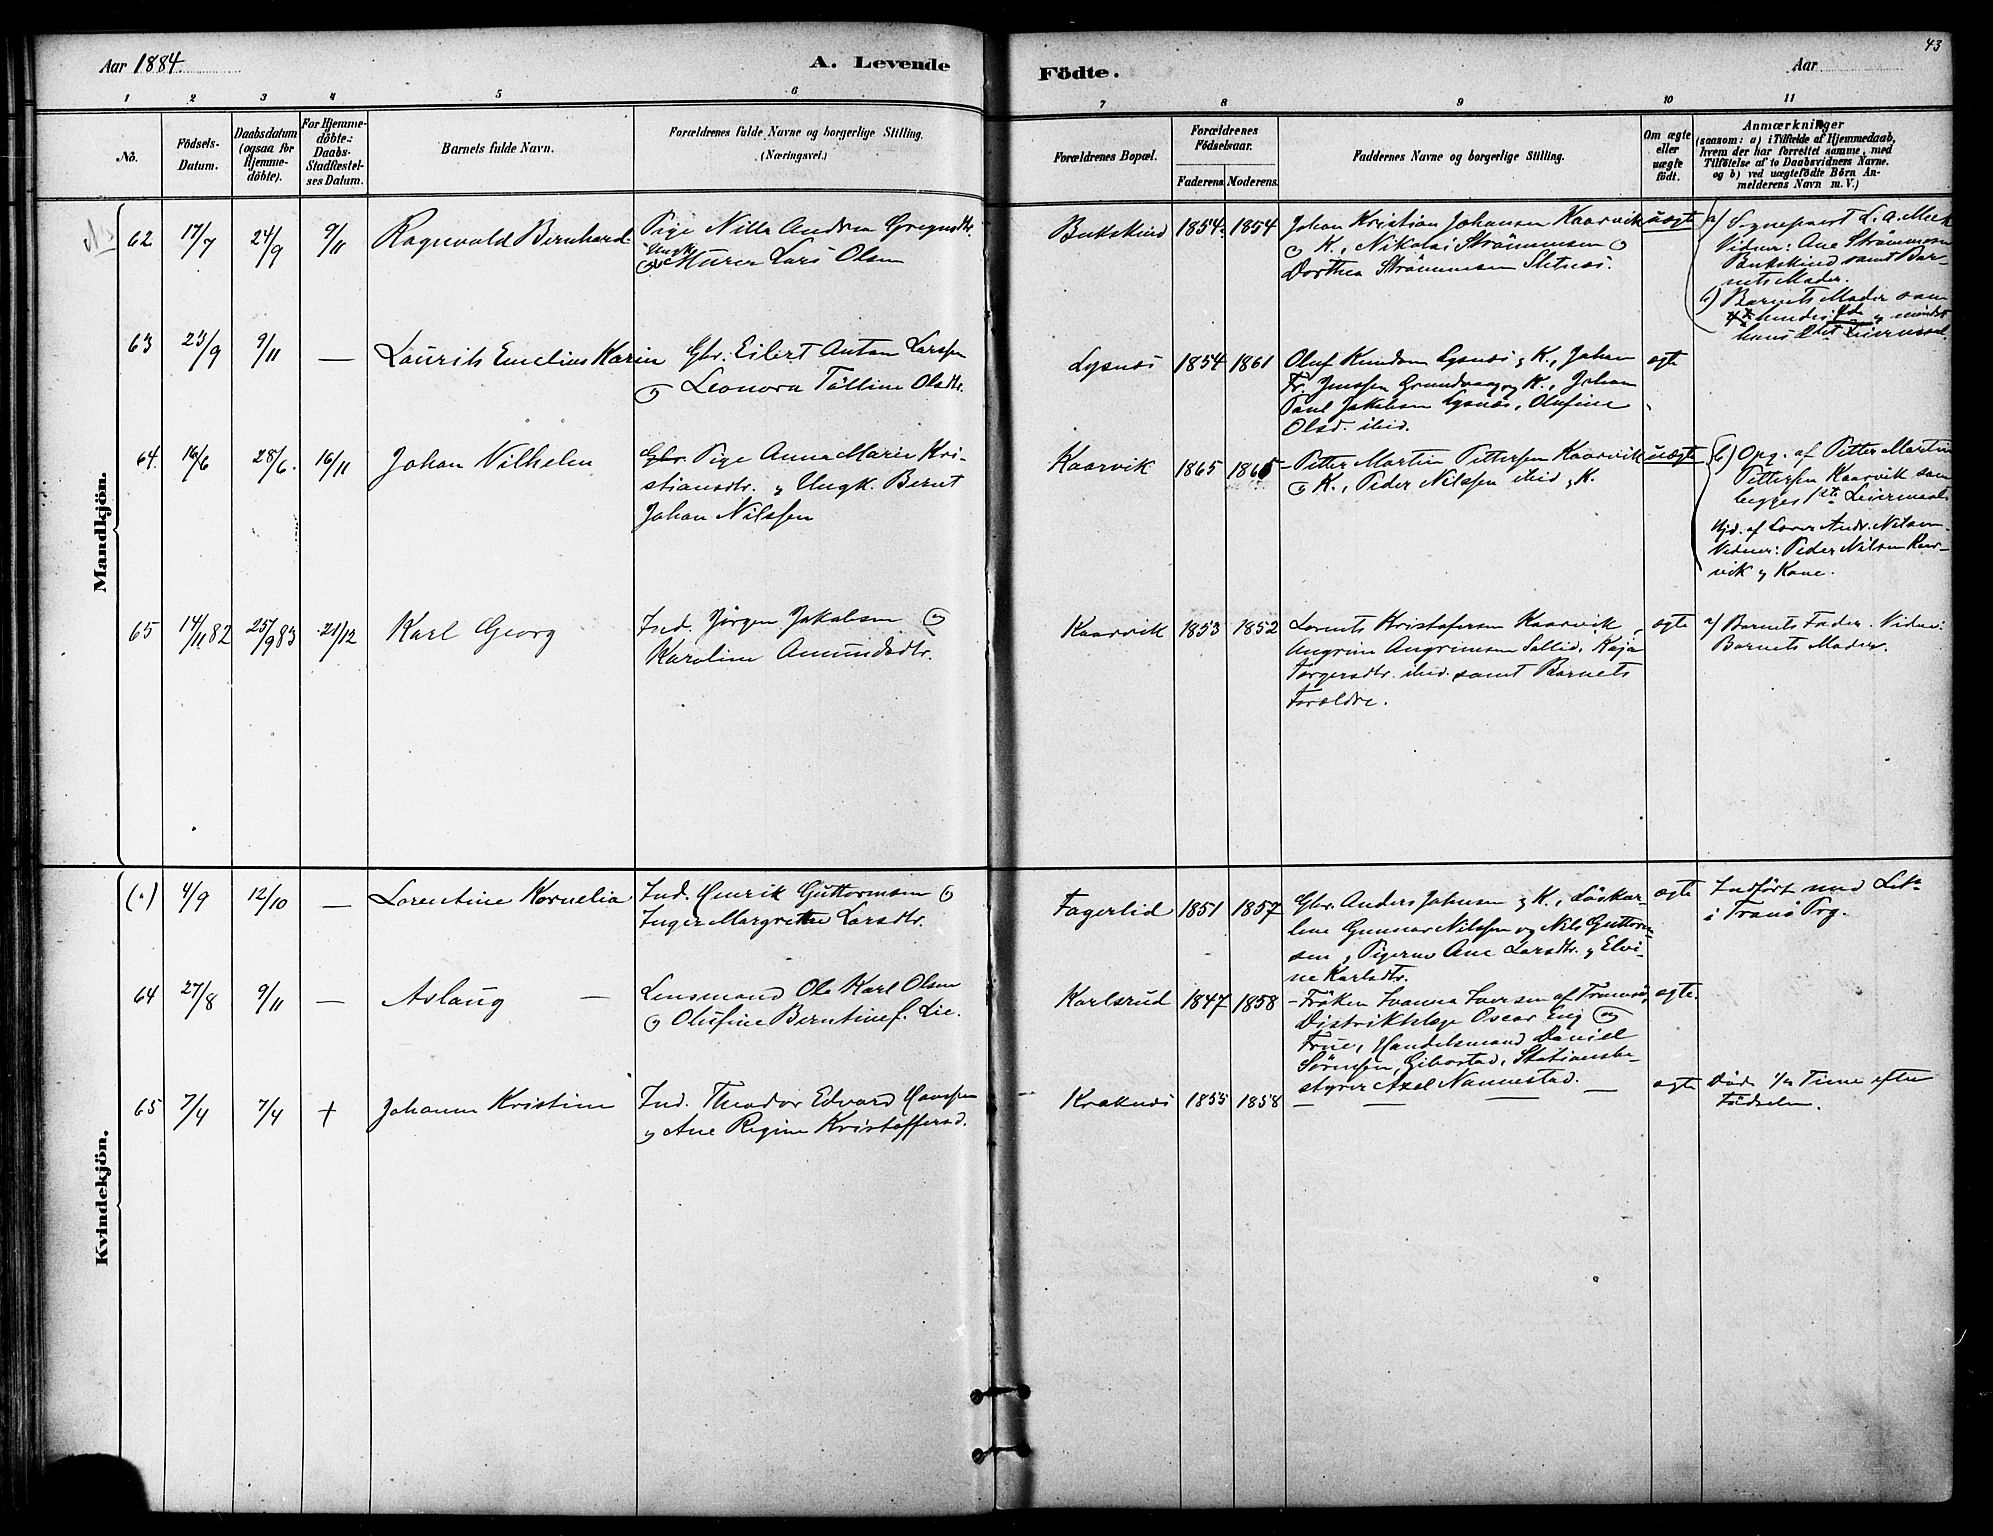 43
Aar 1884.
A. Levende
Födte.
Aar
1 2 3 4 5 6 7 8 9 10 11
No.
Födsels-
Datum.
Daabsdatum
(ogsaa for
Hjemme-
döbte).
For Hjemme-
döbte:
Daabs-
Stadfæstel-
ses Datum.
Barnets fulde Navn.
Forældrenes fulde Navne og borgerlige Stilling.
(Næringsvei.)
Forældrenes Bopæl.
Forældrenes
Födselsaar.
Faderens. Moderens.
Faddernes Navne og borgerlige Stilling.
Om ægte
eller
uægte
födt.
Anmærkninger
(saasom: a) i Tilfælde af Hjemmedaab,
hvem der har forrettet samme, med
Tilföielse af to Daabsvidners Navne.
og b) ved uægtefödte Börn An-
melderens Navn m. V.)
Mandkjön.
62 17/7 24/9 9/11 Ragnvald Bernhard
Pige Nilla Andrea
Ungk.
Murer Lars Olsen
Bukskind 1854 1854
Johan Kristian Johansen Kaarvik
og K., Nikolai Strömmesen og
Dorthea Strömmesen
uægte
a) L. A. Meek
Vidner: Ane Strömmesen
Bukskind samt Bar-
nets Moder.
b) Barnets Moder som
hendes
hans 2det Leiermaal.
63 23/9 9/11 — Laurits Emelius Karin
Gbr. Eilert Anton Larssen
og Leonora Tölline Olsdtr.
Lysnes 1854 1861
Oluf Knudsen Lysnes og K., Johan
Fr. Jenssen Grundvaag og K., Johan
Paul Jakobsen Lysnes, Olufine
Olsd. ibid.
ægte
64. 16/6 28/6. 16/11 Johan Vilhelm
Gbr. Pige Anna Marie Kri-
stiansdtr. og Ungk. Bernt
Johan Nilssen
Kaarvik 1865 1865
Petter Martin Pettersen Kaarvik
og K., Peder Nilssen ibid og K.
uægte
b) Opg. af Petter Martin
Pettersen Kaarvik som
begges 1ste Leiermaal.
Hjd. af Lærer Andr. Nilsen
Vidner: Peder Nilsen Kaar-
vik og Kone.
65 14/11 82 25/9 83 21/12 Karl Georg
Ind. Jörgen Jakobsen og
Karoline Amundsdtr.
Kaarvik 1853 1852
Lorents Kristofersen Kaarvik,
Angrim Angrimsen Sollid, Kaja
Torgersdtr. ibid. samt Barnets
Forældre.
ægte
a) Barnets Fader. Vidne:
Barnets Moder.
Kvindekjön.
4/9 12/10 — Lorentine Kornelia
Ind. Henrik Guttormsen og
Inger Margrethe Larsdtr.
Fagerlid 1851 1857
Gbr. Anders Johnsen og K., Löskar-
lene Gunnar Nilssen og Nils Guttorm-
sen, Pigerne Ane Larsdtr. og Elvi-
ne Karlsdtr.
ægte
Indfört med
i Tranö Prg.
64 27/8 9/11 — Aslaug —
Lensmand Ole Karl Olsen
og Olufine Berntine f. Lie.
Karlsrud 1847 1858
Fröken Ivanna Iversen af Tromsö,
Distriktslæge Oscar Eng og
Frue, Handelsmand Daniel
Sörensen, Gibostad, Stationsbe-
styrer Axel Nannestad. —
ægte.
65 7/4 7/4 + Johanne Kristine
Ind. Theodor Edvard Hanssen
og Ane Regine Kristoffersd.
Kraknes 1855 1858 — — — —
ægte
Död 1/2 Time efter
Födselen.